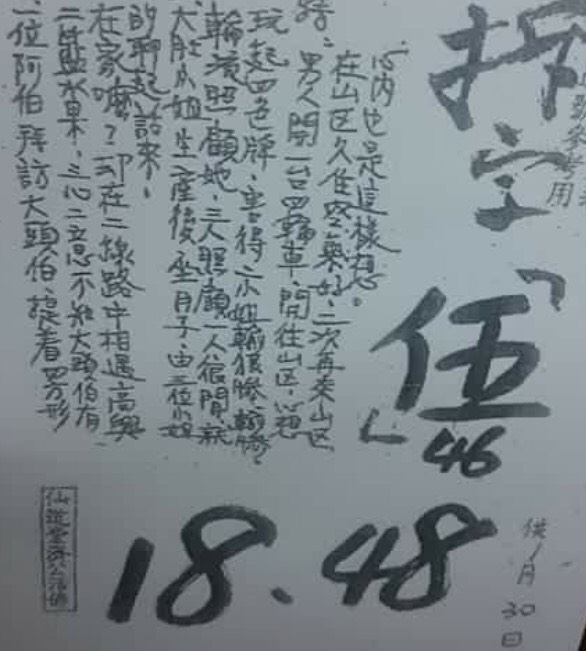 拆字
「伍」
46
18.48
供1月30日
一位阿伯拜訪大頭伯、提着四方形
二籃水果，三心二意不知大頭伯有
在家嘛？却在二線路中相遇高興
的聊起話來。
大肚小姐生産後坐月子，由三位小姐
輪流照顧她，三人照顧一人很閒，就
玩起四色牌，害得二小姐輸很慘，輸慘
時：男人開一台四輪車，開往山区，心想
在山区久住空氣好，二次再來山区
心内也是這樣想。
參考用